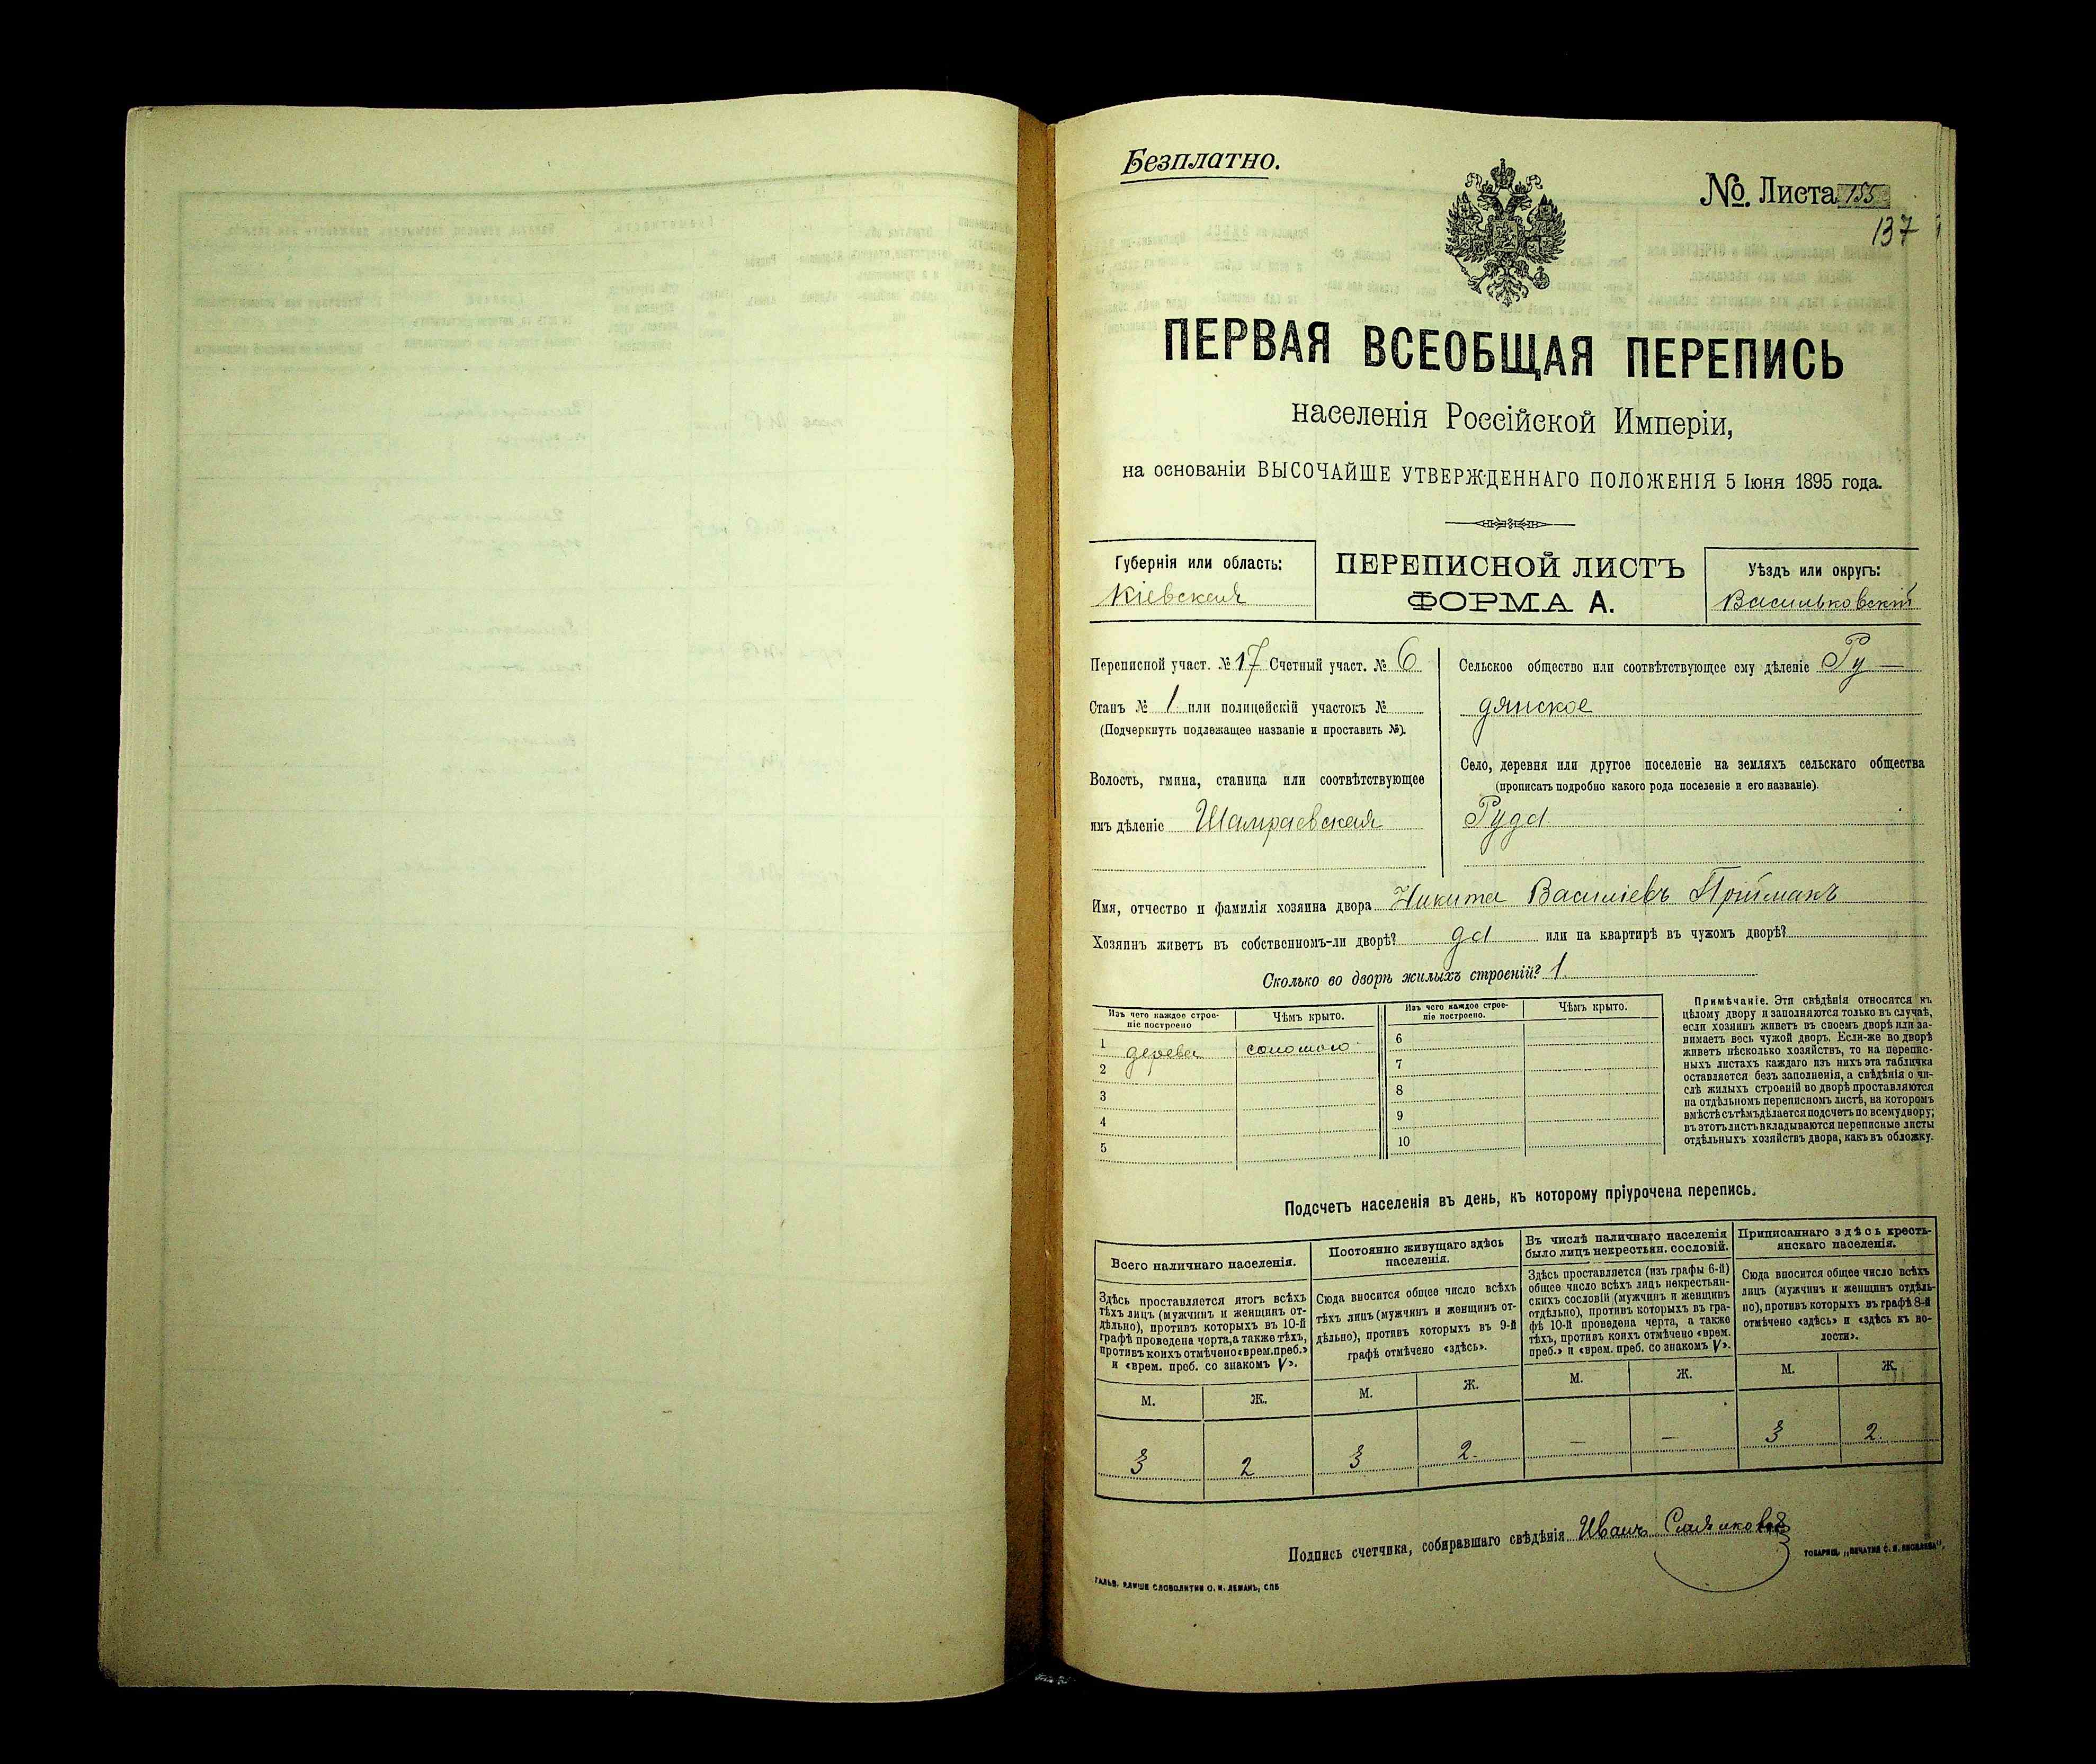 Безплатно.
№. Листа 155
137
ПЕРВАЯ ВСЕОБЩАЯ ПЕРЕПИСЬ
населенія Россійской Имперіи,
на основаніи ВЫСОЧАЙШЕ УТВЕРЖДЕННАГО ПОЛОЖЕНІЯ 5 Іюня 1895 года.
Губернія или область:
Кіевская
ПЕРЕПИСНОЙ ЛИСТЪ
ФОРМА А.
Уѣздъ или округъ:
Васильковскій
Переписной участ. № 17 Счетный участ. № 6
Станъ № 1 или полицейскій участокъ №
(Подчеркнуть подлежащее названіе и проставить №).
Волость, гмина, станица или соотвѣтствующее
имъ дѣленіе Шамраевская
Сельское общество или соотвѣтствующее ему дѣленіе Ру—
дянское
Село, деревня или другое поселеніе на земляхъ сельскаго общества
(прописать подробно какого рода поселеніе и его названіе).
Руда
Имя, отчество и фамилія хозяина двора Никита Василіевъ Прійманъ
Хозяинъ живетъ въ собственномъ-ли дворѣ? да или на квартирѣ въ чужомъ дворѣ?
Сколько во дворѣ жилыхъ строеній? 1
Изъ чего каждое строе-
ніе построено
Чѣмъ крыто.
1 дерева соломою
2
3
4
5
Изъ чего каждое строе-
ніе построено.
Чѣмъ крыто.
6
7
8
9
10
Примѣчаніе. Эти свѣдѣнія относятся къ
цѣлому двору и заполняются только въ случаѣ,
если хозяинъ живетъ въ своемъ дворѣ или за-
нимаетъ весь чужой дворъ. Если-же во дворѣ
живетъ нѣсколько хозяйствъ, то на перепис-
ныхъ листахъ каждаго изъ нихъ эта табличка
оставляется безъ заполненія, а свѣдѣнія о чи-
слѣ жилыхъ строеній во дворѣ проставляются
на отдѣльномъ переписномъ листѣ, на которомъ
вмѣстѣ съ тѣмъ дѣлается подсчетъ по всему двору;
въ этотъ листъ вкладываются переписные листы
отдѣльныхъ хозяйствъ двора, какъ въ обложку.
Подсчетъ населенія въ день, къ которому пріурочена перепись.
Всего наличнаго населенія.
Здѣсь проставляется итогъ всѣхъ
тѣхъ лицъ (мужчинъ и женщинъ от-
дѣльно), противъ которыхъ въ 10-й
графѣ проведена черта, а также тѣхъ,
противъ коихъ отмѣчено «врем. преб.»
и «врем. преб. со знакомъ V».
М. Ж.
3 2
Постоянно живущаго здѣсь
населенія.
Сюда вносится общее число всѣхъ
тѣхъ лицъ (мужчинъ и женщинъ от-
дѣльно), противъ которыхъ въ 9-й
графѣ отмѣчено «здѣсь».
М. Ж.
3 2.
Въ числѣ наличнаго населенія
было лицъ некрестьян. сословій.
Здѣсь проставляется (изъ графы 6-й)
общее число всѣхъ лицъ некрестьян-
скихъ сословій (мужчинъ и женщинъ
отдѣльно), противъ которыхъ въ гра-
фѣ 10-й проведена черта, а также
тѣхъ, противъ коихъ отмѣчено «врем.
преб.» и «врем. преб. со знакомъ V».
М. Ж.
— —
Приписаннаго здѣсь кресть-
янскаго населенія.
Сюда вносится общее число всѣхъ
лицъ (мужчинъ и женщинъ отдѣль-
но), противъ которыхъ въ графѣ 8-й
отмѣчено «здѣсь» и «здѣсь къ во-
лости».
М. Ж.
3 2.
Подпись счетчика, собиравшаго свѣдѣнія Иванъ
ГАЛЬВ. КЛИШЕ СЛОВОЛИТНИ О. И. ЛЕМАНЪ, СПБ
ТОВАРИЩ. „ПЕЧАТНЯ С. П. ЯКОВЛЕВА".